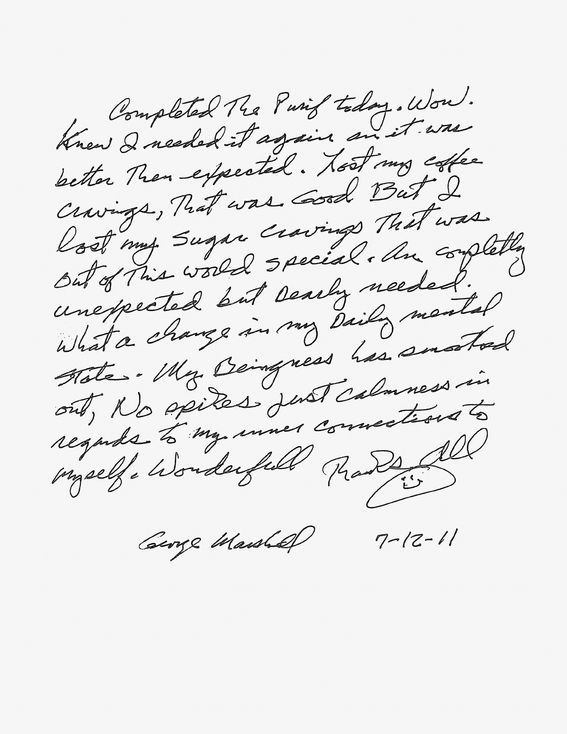 Completed The Purif today. Wow.
Knew I needed it again an it was
better Then expected. Lost my coffee
cravings, That was Good But I
lost my Sugar cravings That was
out of This world special. An completly
unexpected but Dearly needed.
What a change in my Daily mental
state. My Beingness has smoothed
out, No spikes just calmness in
regards to my inner connections to
myself. Wonderfull Thanks All
George Marshall 7-12-11